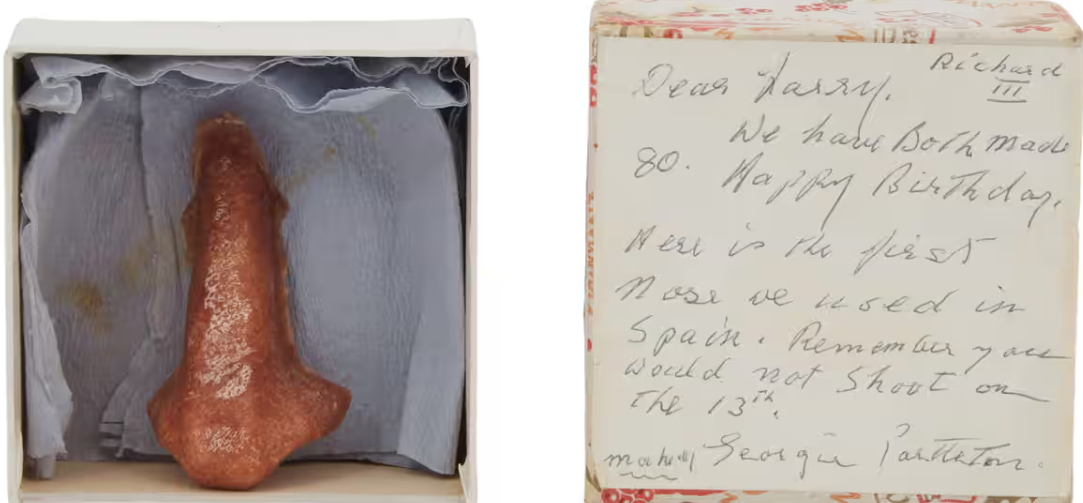 Richard
III
Dear Larry,
We have Both made
80. Happy Birthday.
Here is the first
Nose we used in
Spain. Remember you
would not Shoot on
the 13th.
George Partleton.